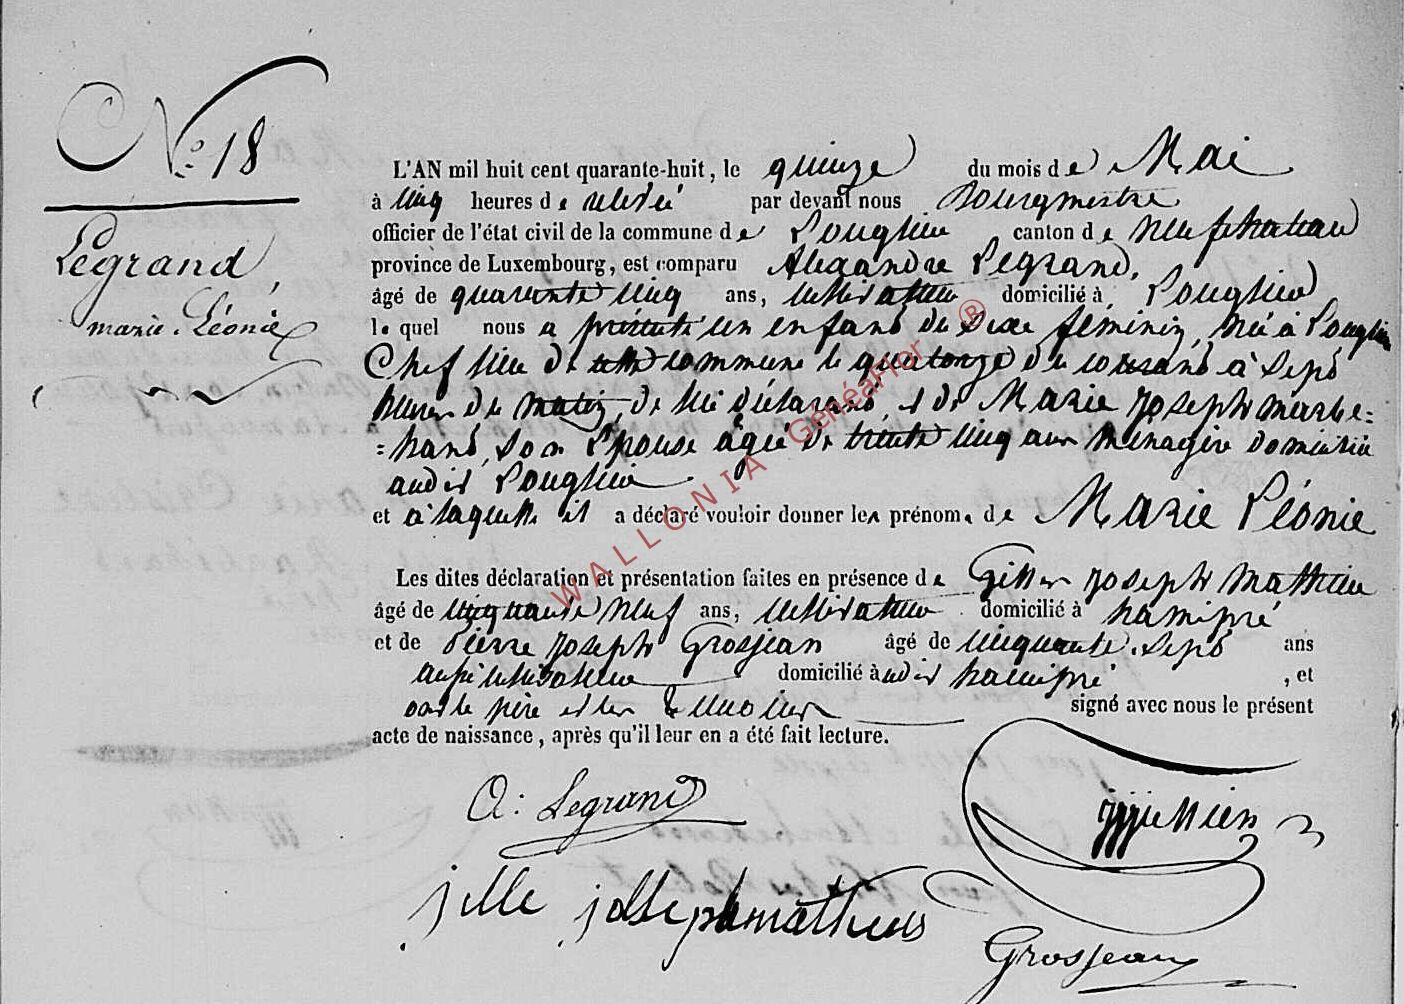 N° 18
Legrand
marie Léonie
L'AN mil huit cent quarante-huit, le quinze du mois de Mai
à cinq heures de relevée par devant nous Bourgmestre
officier de l'état civil de la commune de Longlier canton de neufchateau
province de Luxembourg, est comparu Alexandre Legrand,
âgé de quarante cinq ans, cultivateur domicilié à Longlier
lequel nous a présenté un enfant du sexe féminin, née à Longlier
Chef lieu de cette commune le quatorze du courant à sept
heures du matin, de lui déclarant, et de Marie Joseph marbe=
=hand, son Epouse agée de trente cinq ans ménagère domiciliée
audit Longlier
et à laquelle il a déclaré vouloir donner les prénoms de Marie Léonie
Les dites déclaration et présentation faites en présence de Gilles Joseph Mathieu
âgé de cinquante neuf ans, cultivateur domicilié à hamipré
et de Pierre Joseph Grosjean âgé de cinquante sept ans
aussi cultivateur domicilié à udit hamipré, et
ont le père et les témoins signé avec nous le présent
acte de naissance, après qu'il leur en a été fait lecture.
A: Legrand
jille josseph mathieus
Grosjean
WALLONIA Généaflor ®